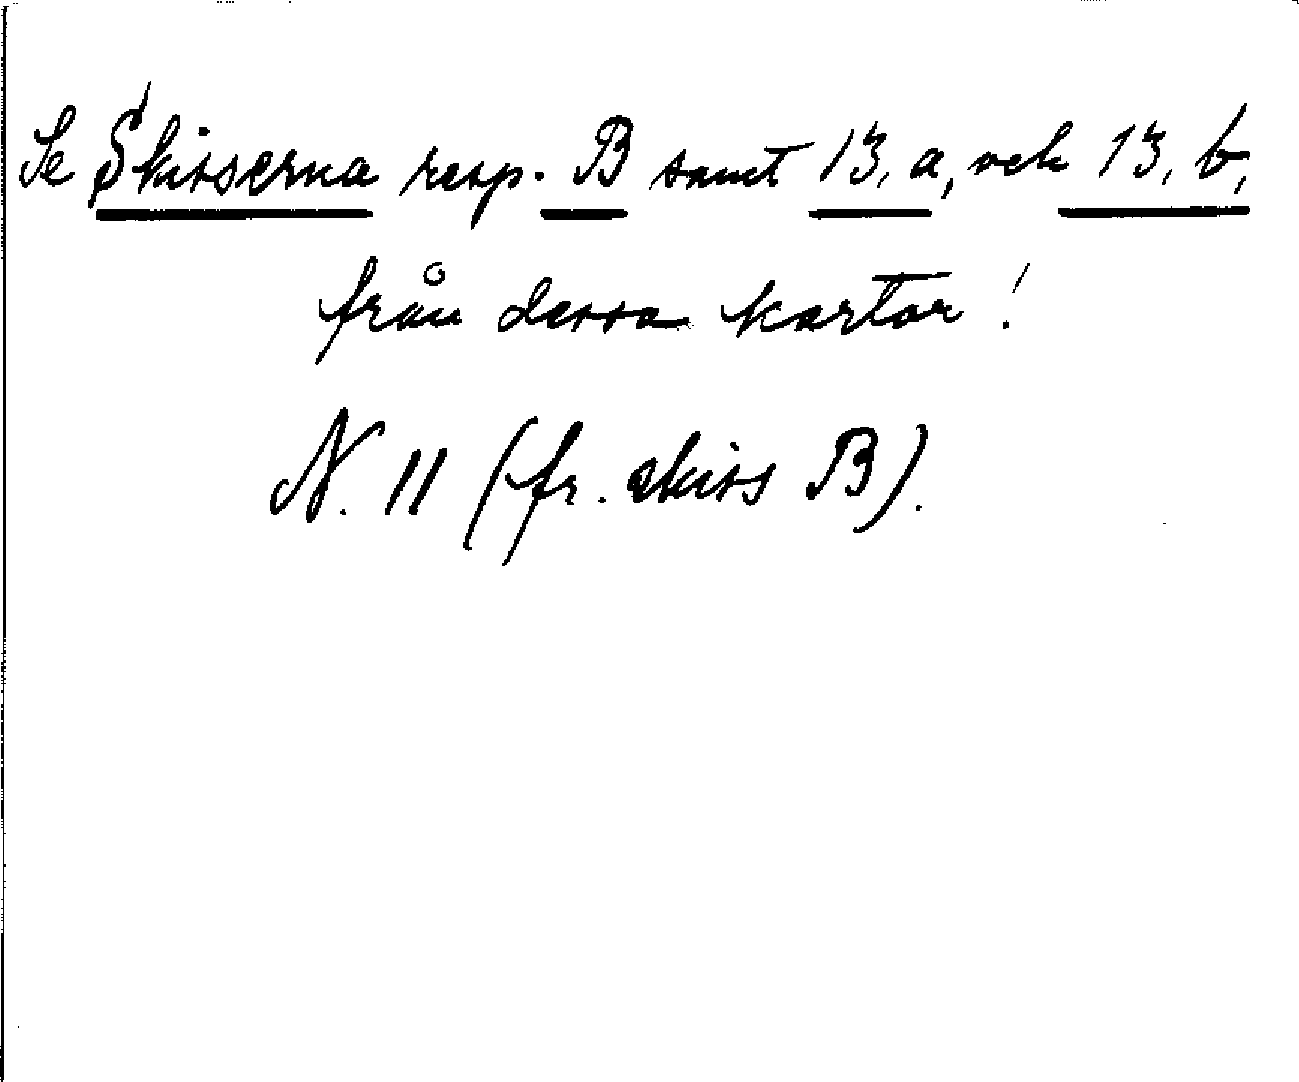 Se Skisserna resp. B samt 13, a, och 13, b,
från dessa kartor!
N. 11 (fr. skiss B).